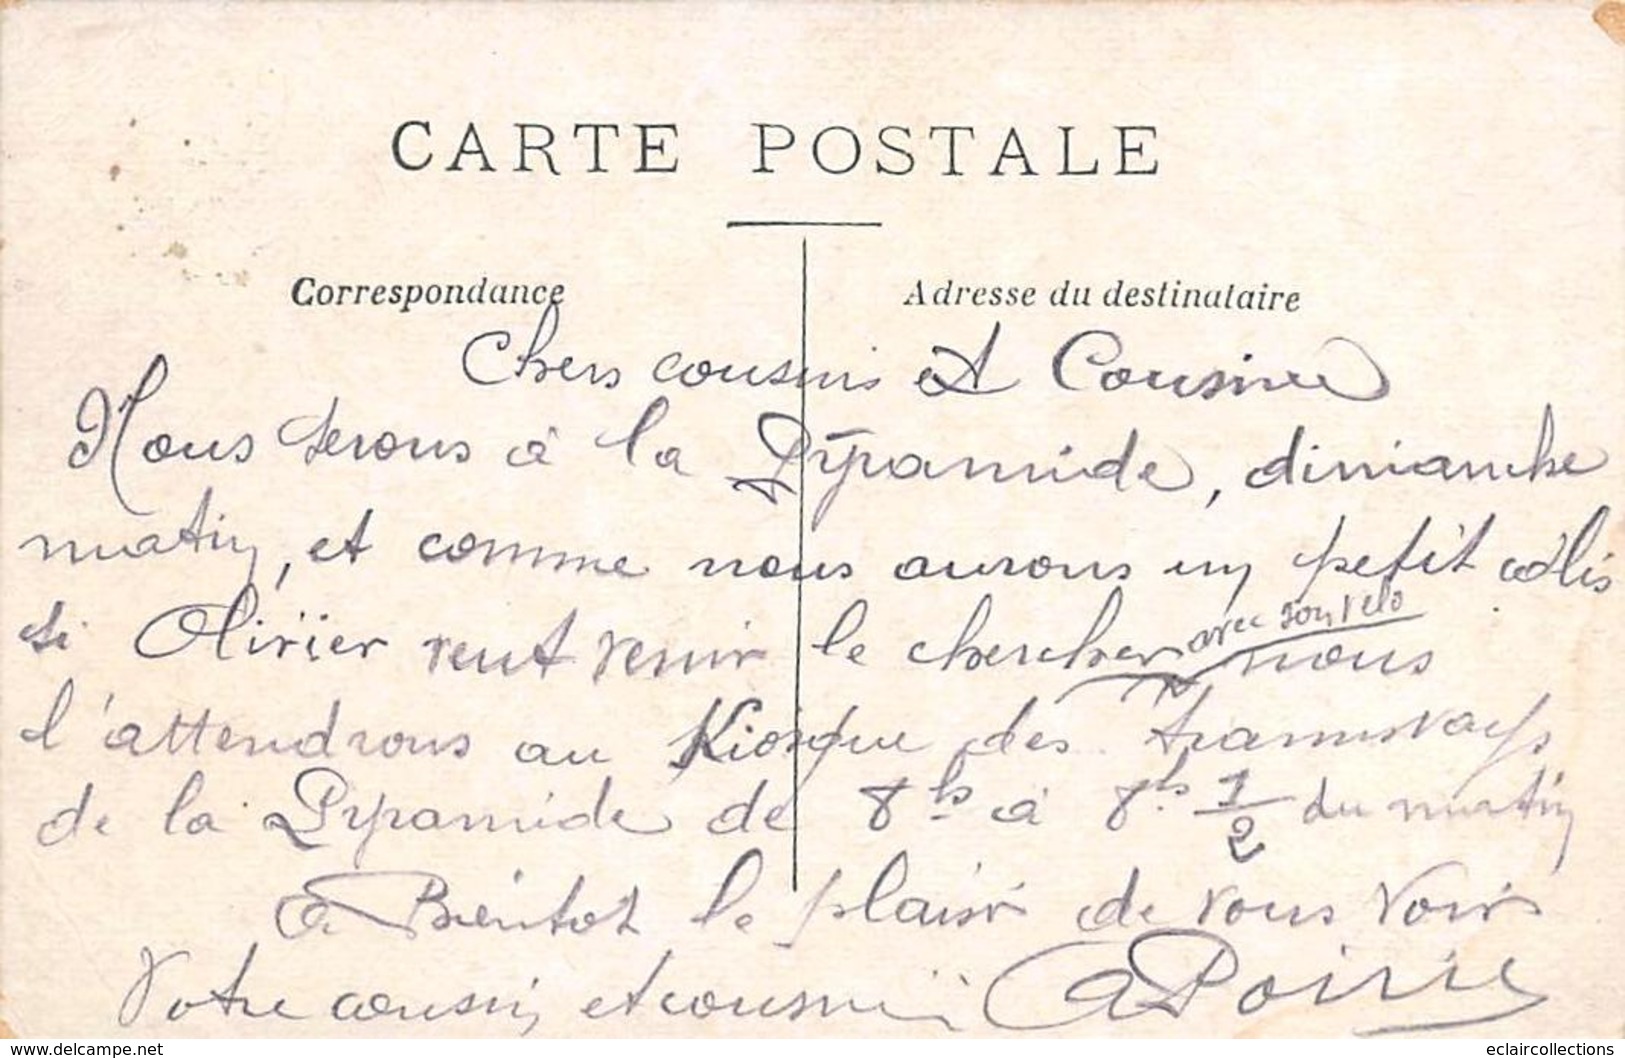 CARTE POSTALE
Correspondance
Adresse du destinataire
Chers cousins et Cousine
Nous serons à la Pyramide, dimanche
matin, et comme nous aurons un petit colis
si Olivier veut venir le chercher avec son velo nous
l'attendrons au Kiosque des tramways
de la Pyramide de 8 hs à 8 hs 1/2 du matin
à Bientot le plaisir de vous voir
Votre cousin et cousine
delcampe.net
eclaircollections